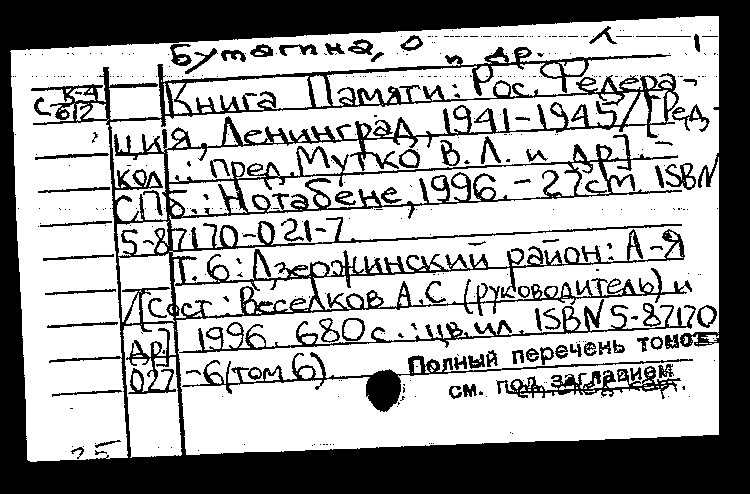 Бутягина, О и др.
К-4
С 612
Книга Памяти: Рос. Федера-
ция, Ленинград, 1941-1945/[Ред.
кол.: пред. Мутко В.Л. и др]. -
СПб.: Нотабене, 1996. - 27cm ISBN
5-87170-021-7.
Т. 6: Дзержинский район: А-Я
/[Сост.: Веселков А.С. (руководитель) и
др] 1996. 680 с.: цв. ил. ISBN 5-87170
027 -6 (том 6).
Полный перечень томов
см. под заглавием
25